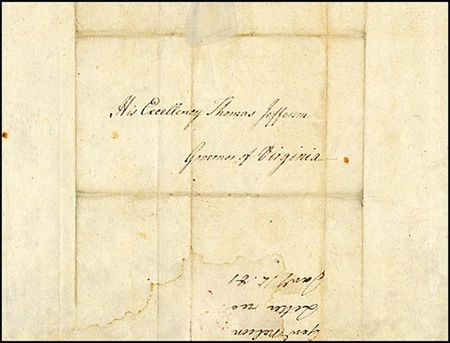 His Excellency Thomas Jefferson
Governor of Virginia
Genl Nelson
Letter
Jany
81